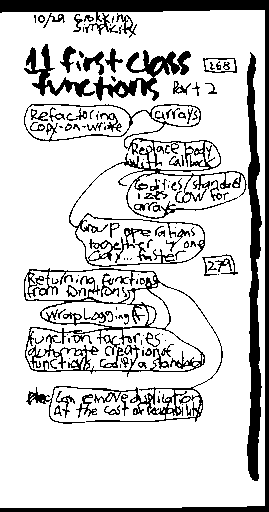 10/29 Grokking
Simplicity
11 first class
functions Part 2
268
Refactoring
copy-on-write
arrays
Replace body
with callback
Codifies/standard
izes COW for
arrays
Group operations
together in one
copy... faster
279
Returning functions
from functions
wrapLogging(f)
function factories:
automate creation of
functions, codify a standard
Can remove duplication
At the cost of readability